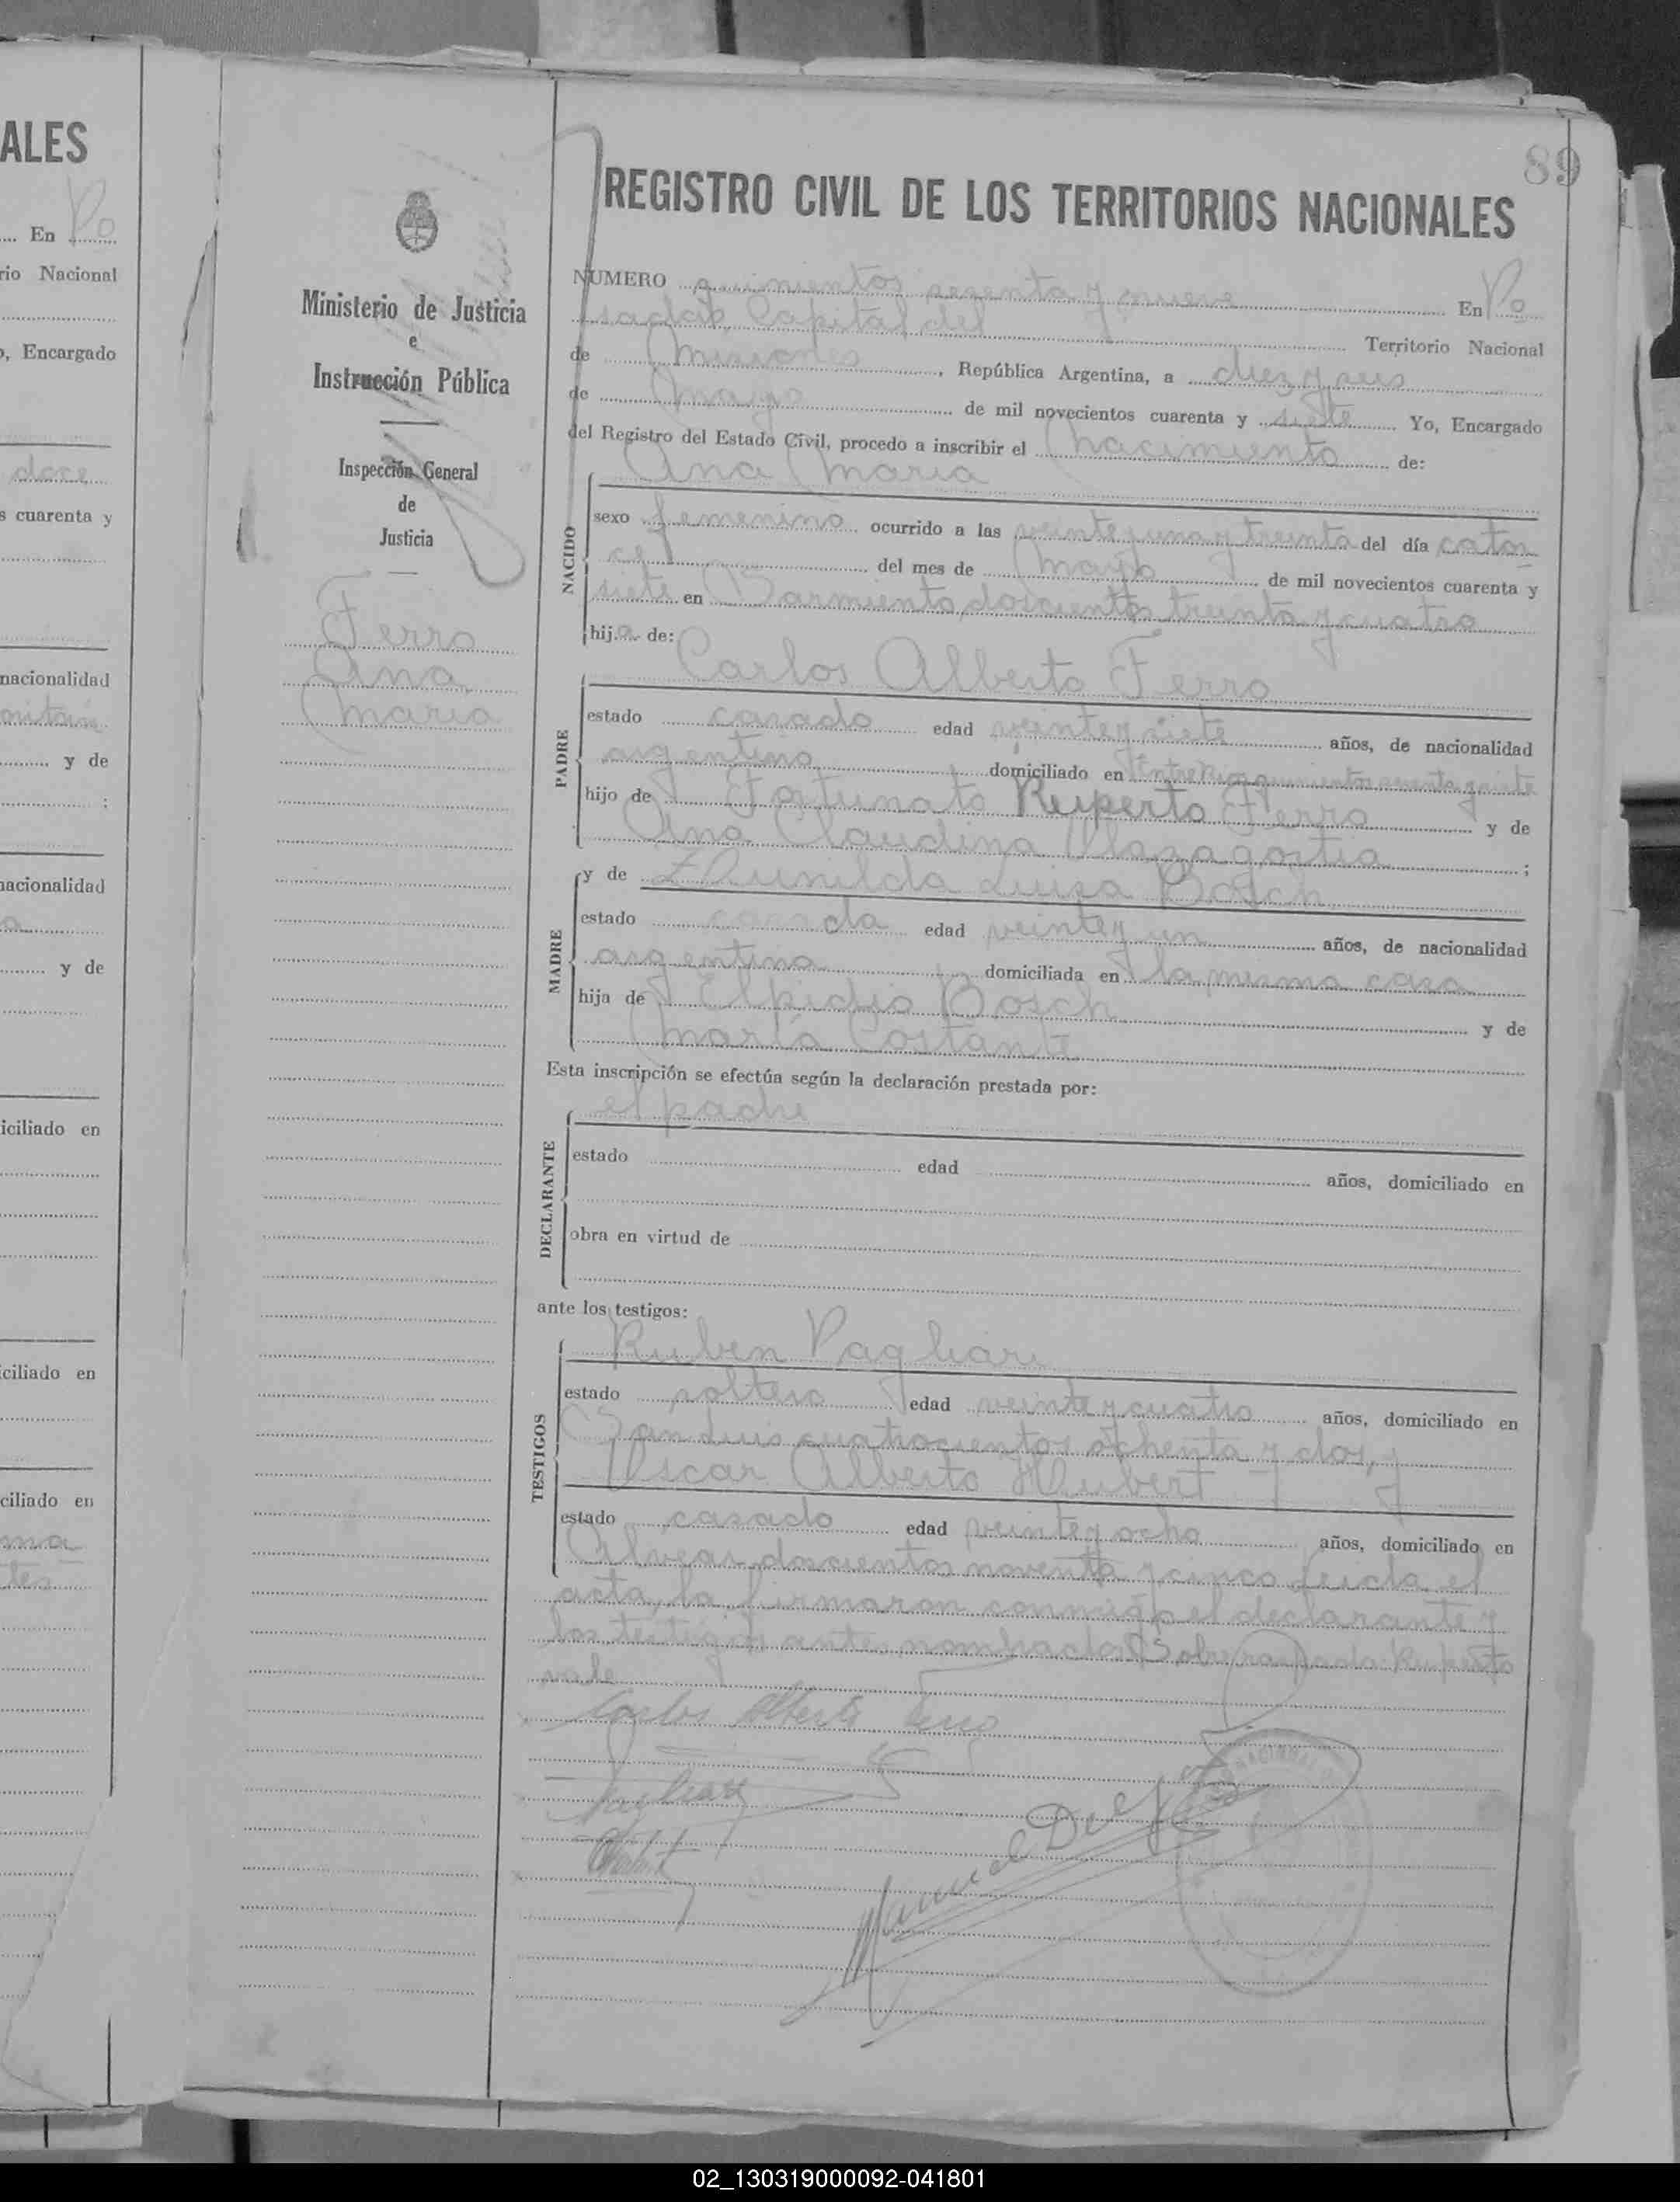 ALES
... En Po
rio Nacional
o, Encargado
doce
s cuarenta y
nacionalidad
y de
;
nacionalidad
a
y de
iciliado en
iciliado en
ciliado en
89
Ministerio de Justicia
e
Instrucción Pública
Inspección General
de
Justicia
Ferro
Ana
Maria
REGISTRO CIVIL DE LOS TERRITORIOS NACIONALES
NUMERO quinientos sesenta y nueve En Po
sadas, Capital del Territorio Nacional
de Misiones, República Argentina, a diez y seis
de Mayo de mil novecientos cuarenta y siete Yo, Encargado
del Registro del Estado Civil, procedo a inscribir el nacimiento de:
Ana Maria
NACIDO
sexo femenino ocurrido a las veinte y una y treinta del día cator
ce del mes de Mayo de mil novecientos cuarenta y
siete en Sarmiento doscientos treinta y cuatro
hija de:
Carlos Alberto Ferro
PADRE
estado casado edad veinte y siete años, de nacionalidad
argentino domiciliado en Entre Rios quinientos y siete
hijo de Fortunato Ruperto Ferro y de
Ana Claudina ;
MADRE
y de Thunilda Luisa Bosch
estado casada edad veinte y un años, de nacionalidad
argentina domiciliada en la misma casa
hija de Elpidio Bosch y de
María Costante
Esta inscripción se efectúa según la declaración prestada por:
el padre
DECLARANTE
estado edad años, domiciliado en
obra en virtud de
ante los testigos:
TESTIGOS
Ruben Pagliari
estado soltero edad veinte y cuatro años, domiciliado en
San Luis cuatrocientos ochenta y dos, y
Oscar Alberto Hubert
estado casado edad veinte y ocho años, domiciliado en
Alvear doscientos noventa y cinco. Leida el
acta, la firmaron conmigo el declarante y
los testigos antes nombrados. Sobre raspado: Ruperto
vale
Carlos Alberto Ferro
Pagliari
Manuel
NACIONAL
02_130319000092-041801